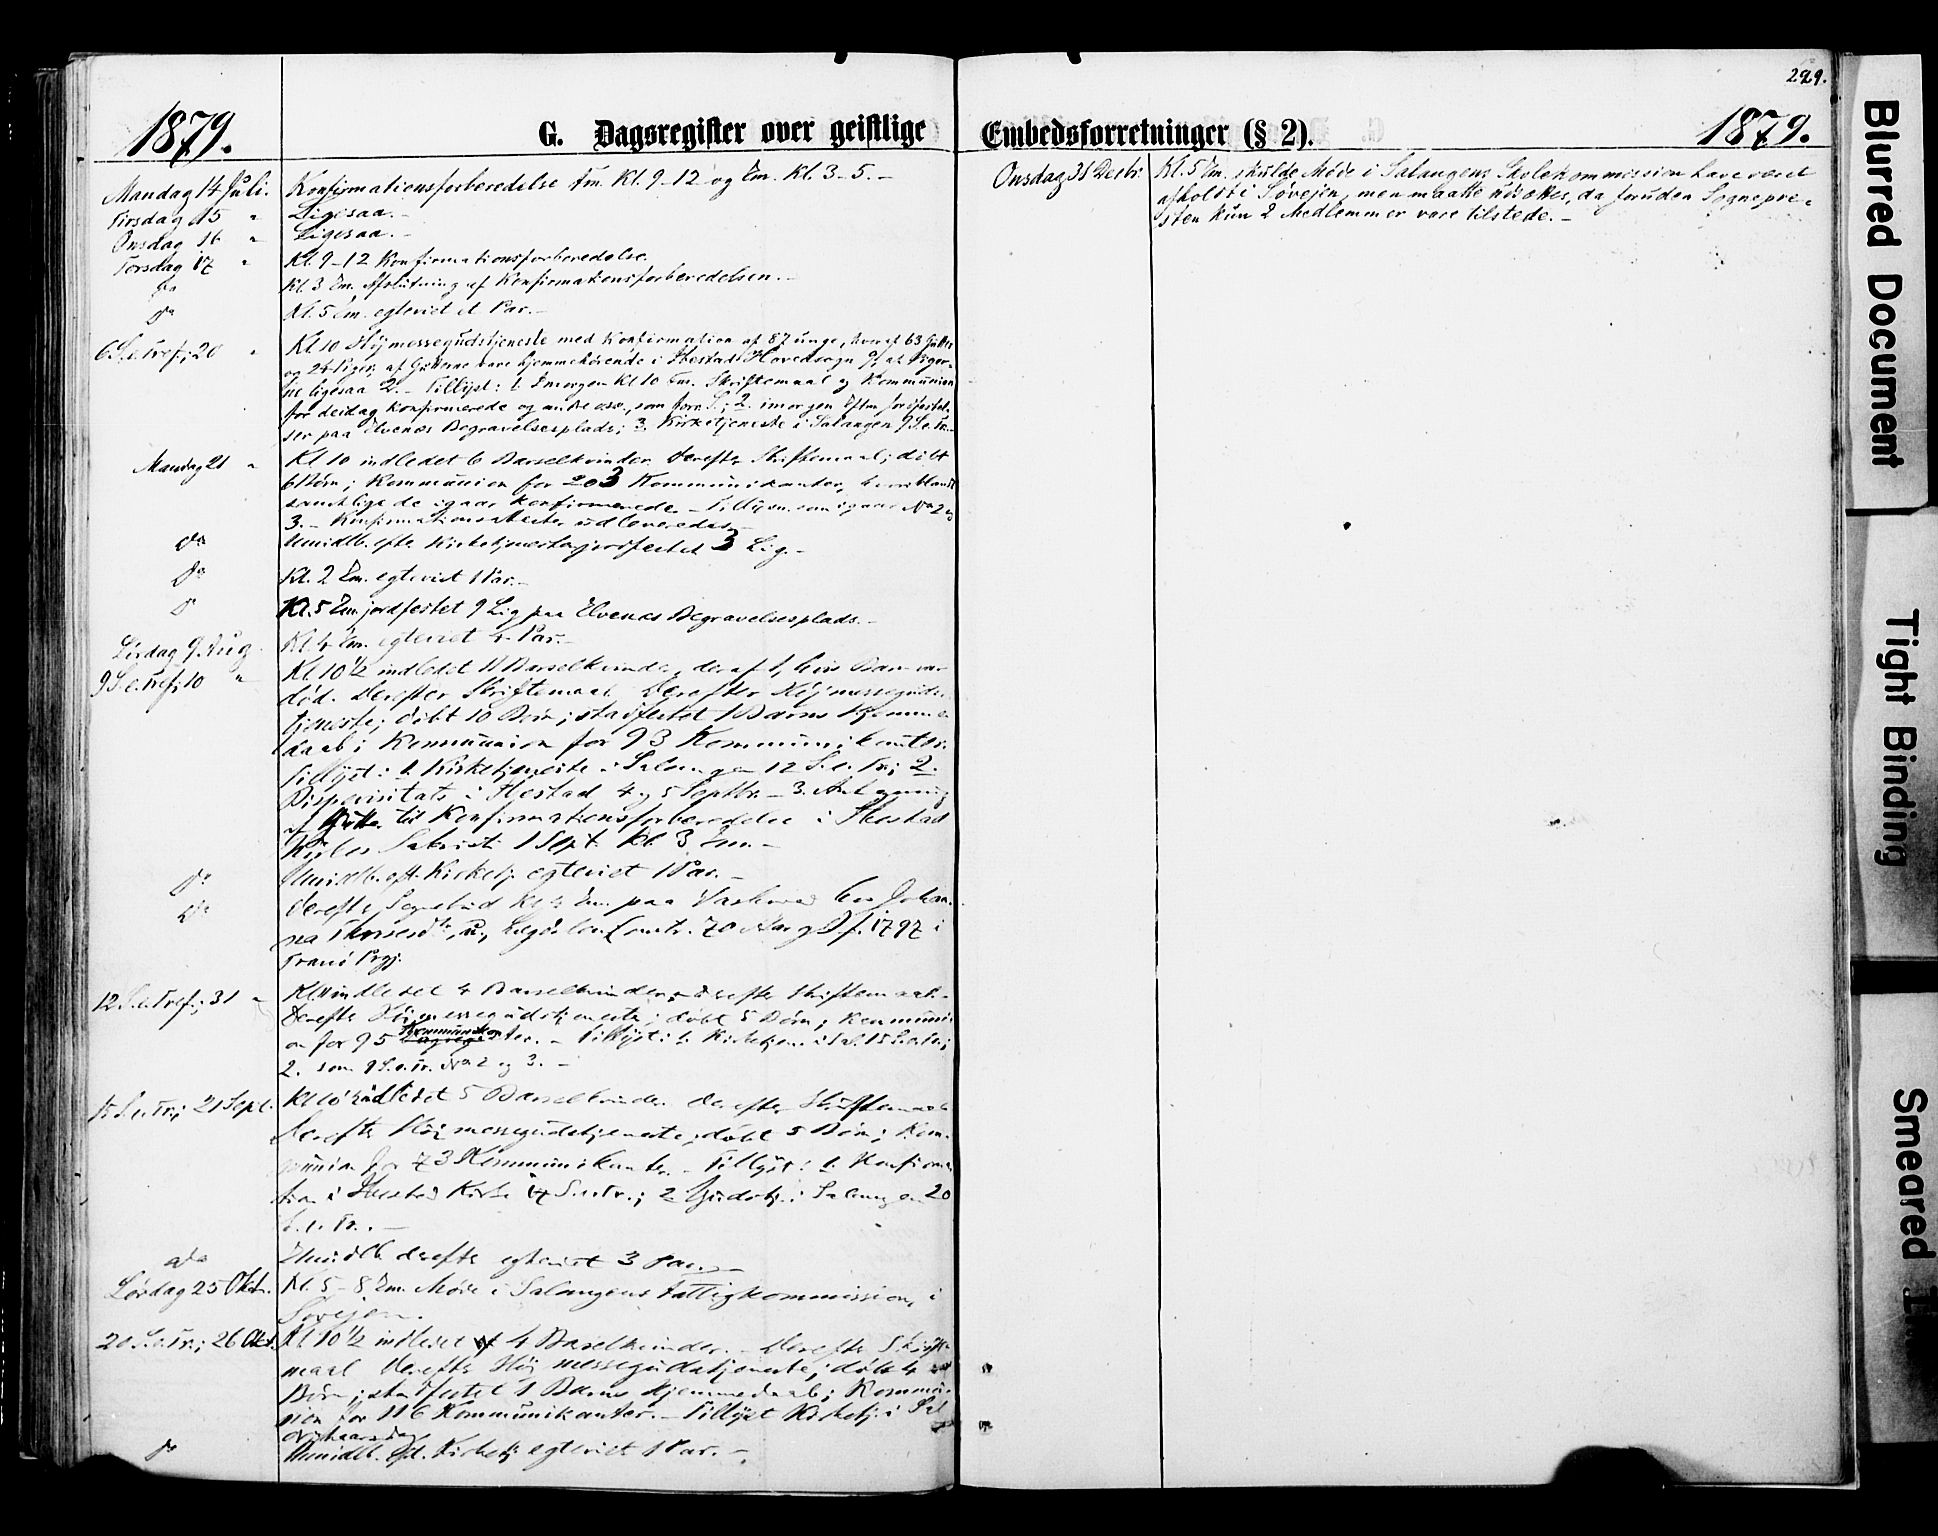 1879.
G. Dagsregister over geistlige
Mandag 14 Juli. Konfirmationsforberedelse Fm. Kl. 9-12 og Em. Kl. 3-5. -
Tirsdag 15 " Ligesaa. -
Onsdag 16 " Ligesaa. -
Torsdag 17 " Kl. 9-12 Konfirmationsforberedelse.
do Kl. 3 Em. Afslutning af Konfirmationsforberedelsen. -
do Kl. 5 Em. egteviet et Par. -
6 S. e. Tref.; 20 " Kl 10 Højmessegudstjeneste med Konfirmation af 87 unge, hvoraf 63 Gutter
og 24 Piger; af Gutterne vare hjemmehørende i Ibestad Hovedsogn af Piger-
ne ligesaa 2. - Tillyst: 1. Imorgen Kl 10 Fm. Skriftemaal og Kommunion
for deidag konfirmerede og andre som 2. imorgen Eftm jordfæstel-
ser paa Elvenes Begravelsesplads; 3. Kirketjeneste i Salangen 9 S. e. Tr. -
Mandag 21 " Kl 10 indledet 6 Barselkvinder. Derefter Skriftemaal; døbt
6 Børn; Kommunion for 203 Kommunikanter, hvoriblandt
samtlige de igaar konfirmerede. - Tillyst som igaar No 2 og
3. - Konfirmationsattester udleveredes. -
do Umidlb. efter Kirketjenesten jordfæstet 3 Lig. -
do Kl. 2 Em. egteviet 1 Par. -
do Kl. 5 Em. jordfestet 9 Lig paa Elvenes Begravelsesplads. -
Lørdag 9 Aug. Kl. 4 Em. egteviet 4 Par. -
9 S. e. Tref.; 10 " Kl 10 1/2 indledet 11 Barselkvinder, deraf 1, hvis Barn var
død. Derefter Skriftemaal. Derefter Højmesseguds-
tjeneste; døbt 10 Børn; stadfestet 1 Barns Hjemme-
daab; Kommunion for 93 Kommunikanter.
Tillyst: 1. Kirketjeneste i Salangen 12 S. e. Tr; 2.
Bispevisitats i Ibestad 4 og 5 Septbr. - 3. Antagning
af Gutter til Konfirmationsforberedelse i Ibestad
Kirkes Sakristi 1 Sept. Kl. 3 Em. -
do Umidlb. eft. Kirketj. egteviet 1 Par. -
do Derefter Sognebud Kl 4 Em. paa hos Johan-
na 70 Aar g. f. 1797 i
Tranø Prgj.
12 S. e. Tref.; 31 " Kl 11 indledet 4 Barselkvinder, derefter Skriftemaal. -
Derefter Højmessegudstjeneste; døbt 5 Børn; Kommuni-
on for 95 Kommunikanter. - Tillyst: 1. Kirketjen. i Sal. 15 S. e. Tr.;
2. som 9 S. e. Tr. No 2 og 3. -
15 S. e. Tr.; 21 Sept. Kl 10 1/2 indledet 5 Barselkvinder. Derefter Skriftemaal
Derefter Højmessegudstjeneste; døbt 5 Børn; Kom-
munion for 73 Kommunikanter. - Tillyst: 1. Konfirma-
tion i Ibestad Kirke 17 S. e. Tr.; 2 Gudstj. i Salangen 20
S. e. Tr. -
do Umidlb. derefter egteviet 3 Par. -
Lørdag 25 Oktr. Kl. 5-8 Em. Møde i Salangens Fattigkommission, i
Søvejen.
20 S. e. Tr.; 26 Okt. Kl 10 1/2 indledet 4 Barselkvinder. - Derefter Skrifte-
maal. Derefter Højmessegudstjeneste; døbt 4
Børn; stadfestet 1 Barns Hjemmedaab; Kommu-
nion for 116 Kommunikanter. - Tillyst Kirketj. i Sal
Nytaarsdag
do Umidlb. eft. Kirketj. egteviet 1 Par. -
229.
Embedsforretninger (§ 2).
1879.
Onsdag 31 Decbr. Kl. 5 Em. skulde Møde i Salangens Skolekommission have været
afholdt i Søvejen, men maatte udsættes, da foruden Sognepre-
sten kun 2 Medlemmer vare tilstede. -
Blurred Document
Tight Binding
Smeared